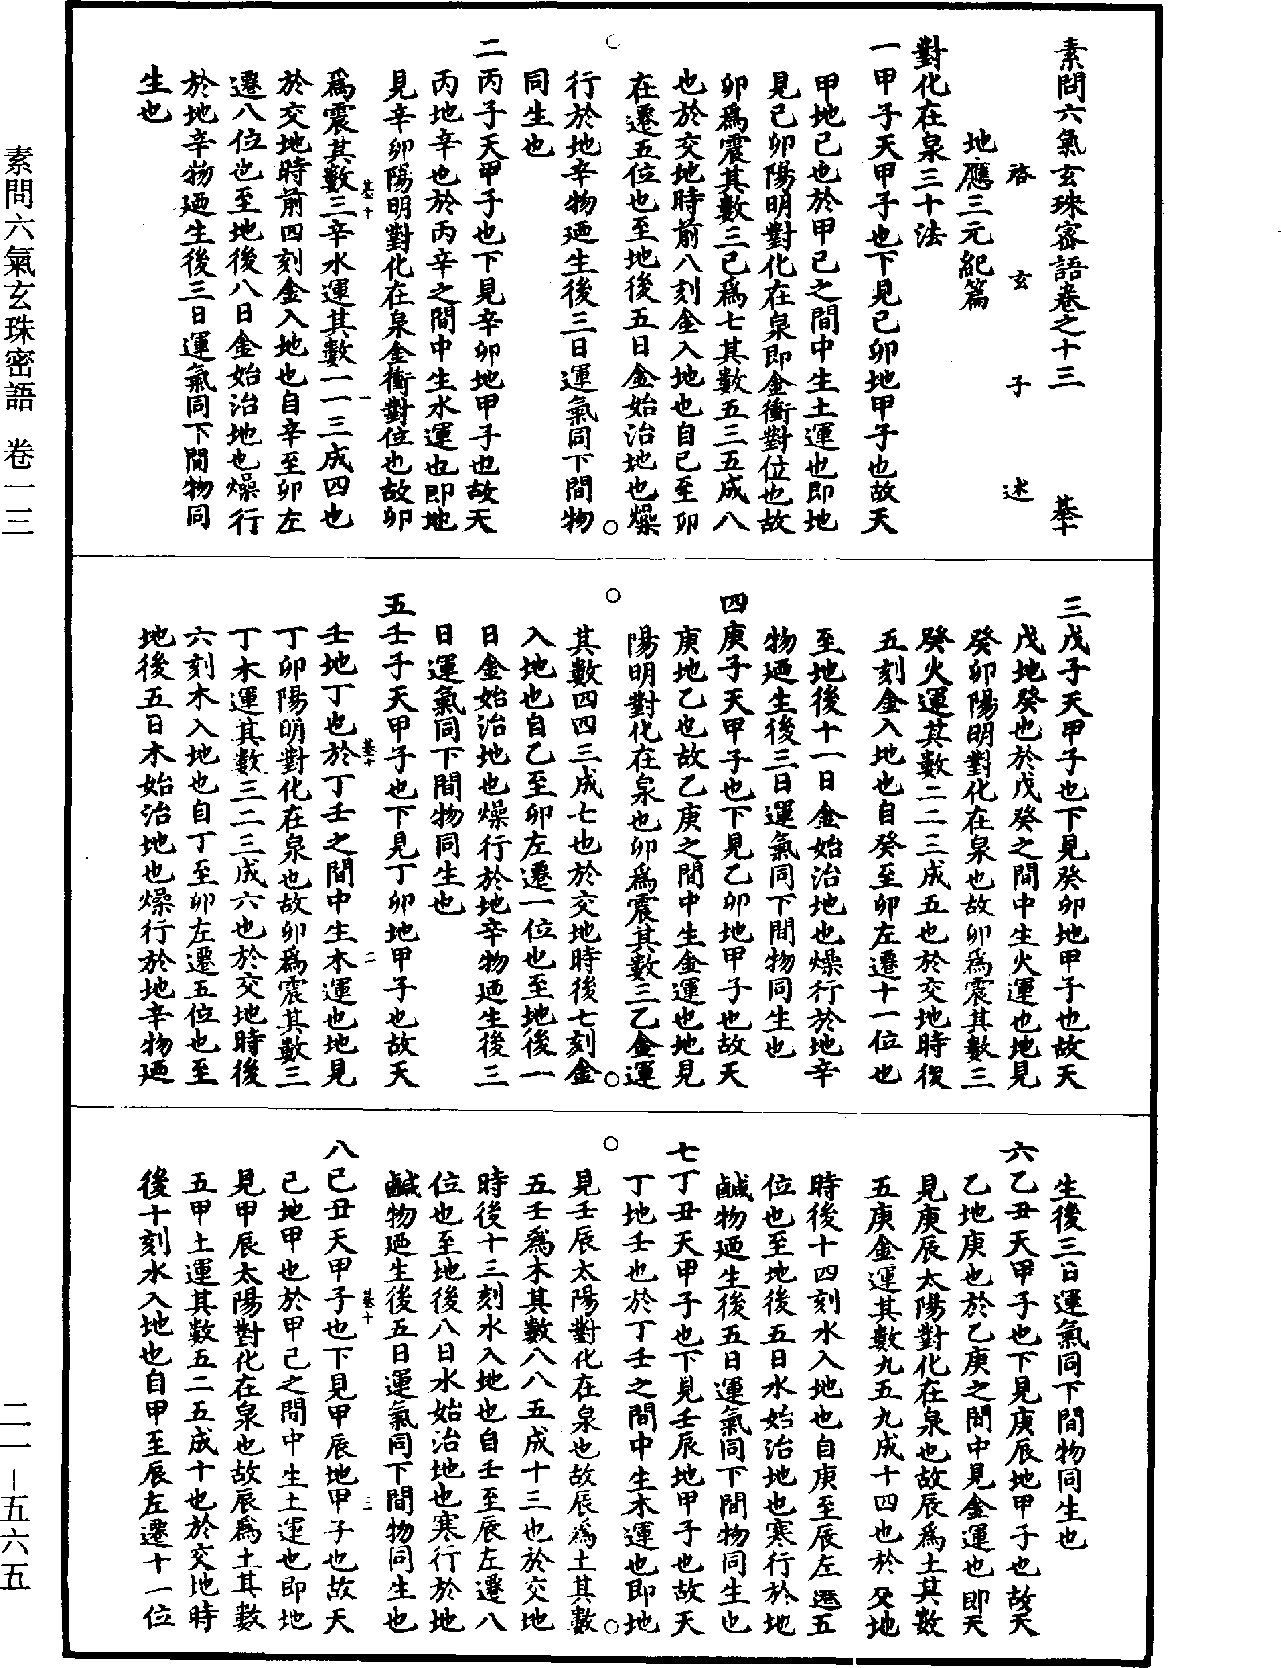 素問六氣玄珠密語卷之十三 基十
啓玄子述
地應三元紀篇
對化在泉三十法
一甲子天甲子也下見己卯地甲子也故天
甲地己也於甲己之間中生土運也即地
見己卯陽明對化在泉即金衝對位也故
卯爲震其數三己爲七其數五三五成八
也於交地時前八刻金入地也自己至卯
在遷五位也至地後五日金始治地也燥
行於地辛物廼生後三日運氣同下間物
同生也
二丙子天甲子也下見辛卯地甲子也故天
丙地辛也於丙辛之間中生水運也即地
見辛卯陽明對化在泉金衝對位也故卯
基十 一
爲震其數三辛水運其數一一三成四也
於交地時前四刻金入地也自辛至卯左
遷八位也至地後八日金始治地也燥行
於地辛物廼生後三日運氣同下間物同
生也
三戊子天甲子也下見癸卯地甲子也故天
戊地癸也於戊癸之間中生火運也地見
癸卯陽明對化在泉也故卯爲震其數三
癸火運其數二二三成五也於交地時後
五刻金入地也自癸至卯左遷十一位也
至地後十一日金始治地也燥行於地辛
物廼生後三日運氣同下間物同生也
四庚子天甲子也下見乙卯地甲子也故天
庚地乙也故乙庚之間中生金運也地見
陽明對化在泉也卯爲震其數三乙金運
其數四四三成七也於交地時後七刻金
入地也自乙至卯左遷一位也至地後一
日金始治地也燥行於地辛物廼生後三
日運氣同下間物同生也
五壬子天甲子也下見丁卯地甲子也故天
基十 二
壬地丁也於丁壬之間中生木運也地見
丁卯陽明對化在泉也故卯爲震其數三
丁木運其數三二三成六也於交地時後
六刻木入地也自丁至卯左遷五位也至
地後五日木始治地也燥行於地辛物廼
生後三日運氣同下間物同生也
六乙丑天甲子也下見庚辰地甲子也故天
乙地庚也於乙庚之間中見金運也即天
見庚辰太陽對化在泉也故辰爲土其數
五庚金運其數九五九成十四也於交地
時後十四刻水入地也自庚至辰左遷五
位也至地後五日水始治地也寒行於地
鹹物廼生後五日運氣同下間物同生也
七丁丑天甲子也下見壬辰地甲子也故天
丁地壬也於丁壬之間中生木運也即地
見壬辰太陽對化在泉也故辰爲土其數
五壬爲木其數八八五成十三也於交地
時後十三刻水入地也自壬至辰左遷八
位也至地後八日水始治地也寒行於地
鹹物廼生後五日運氣同下間物同生也
基十 三
八己丑天甲子也下見甲辰地甲子也故天
己地甲也於甲己之間中生土運也即地
見甲辰太陽對化在泉也故辰爲土其數
五甲土運其數五二五成十也於交地時
後十刻水入地也自甲至辰左遷十一位
素問六氣玄珠密語 卷一三
二一—五六五